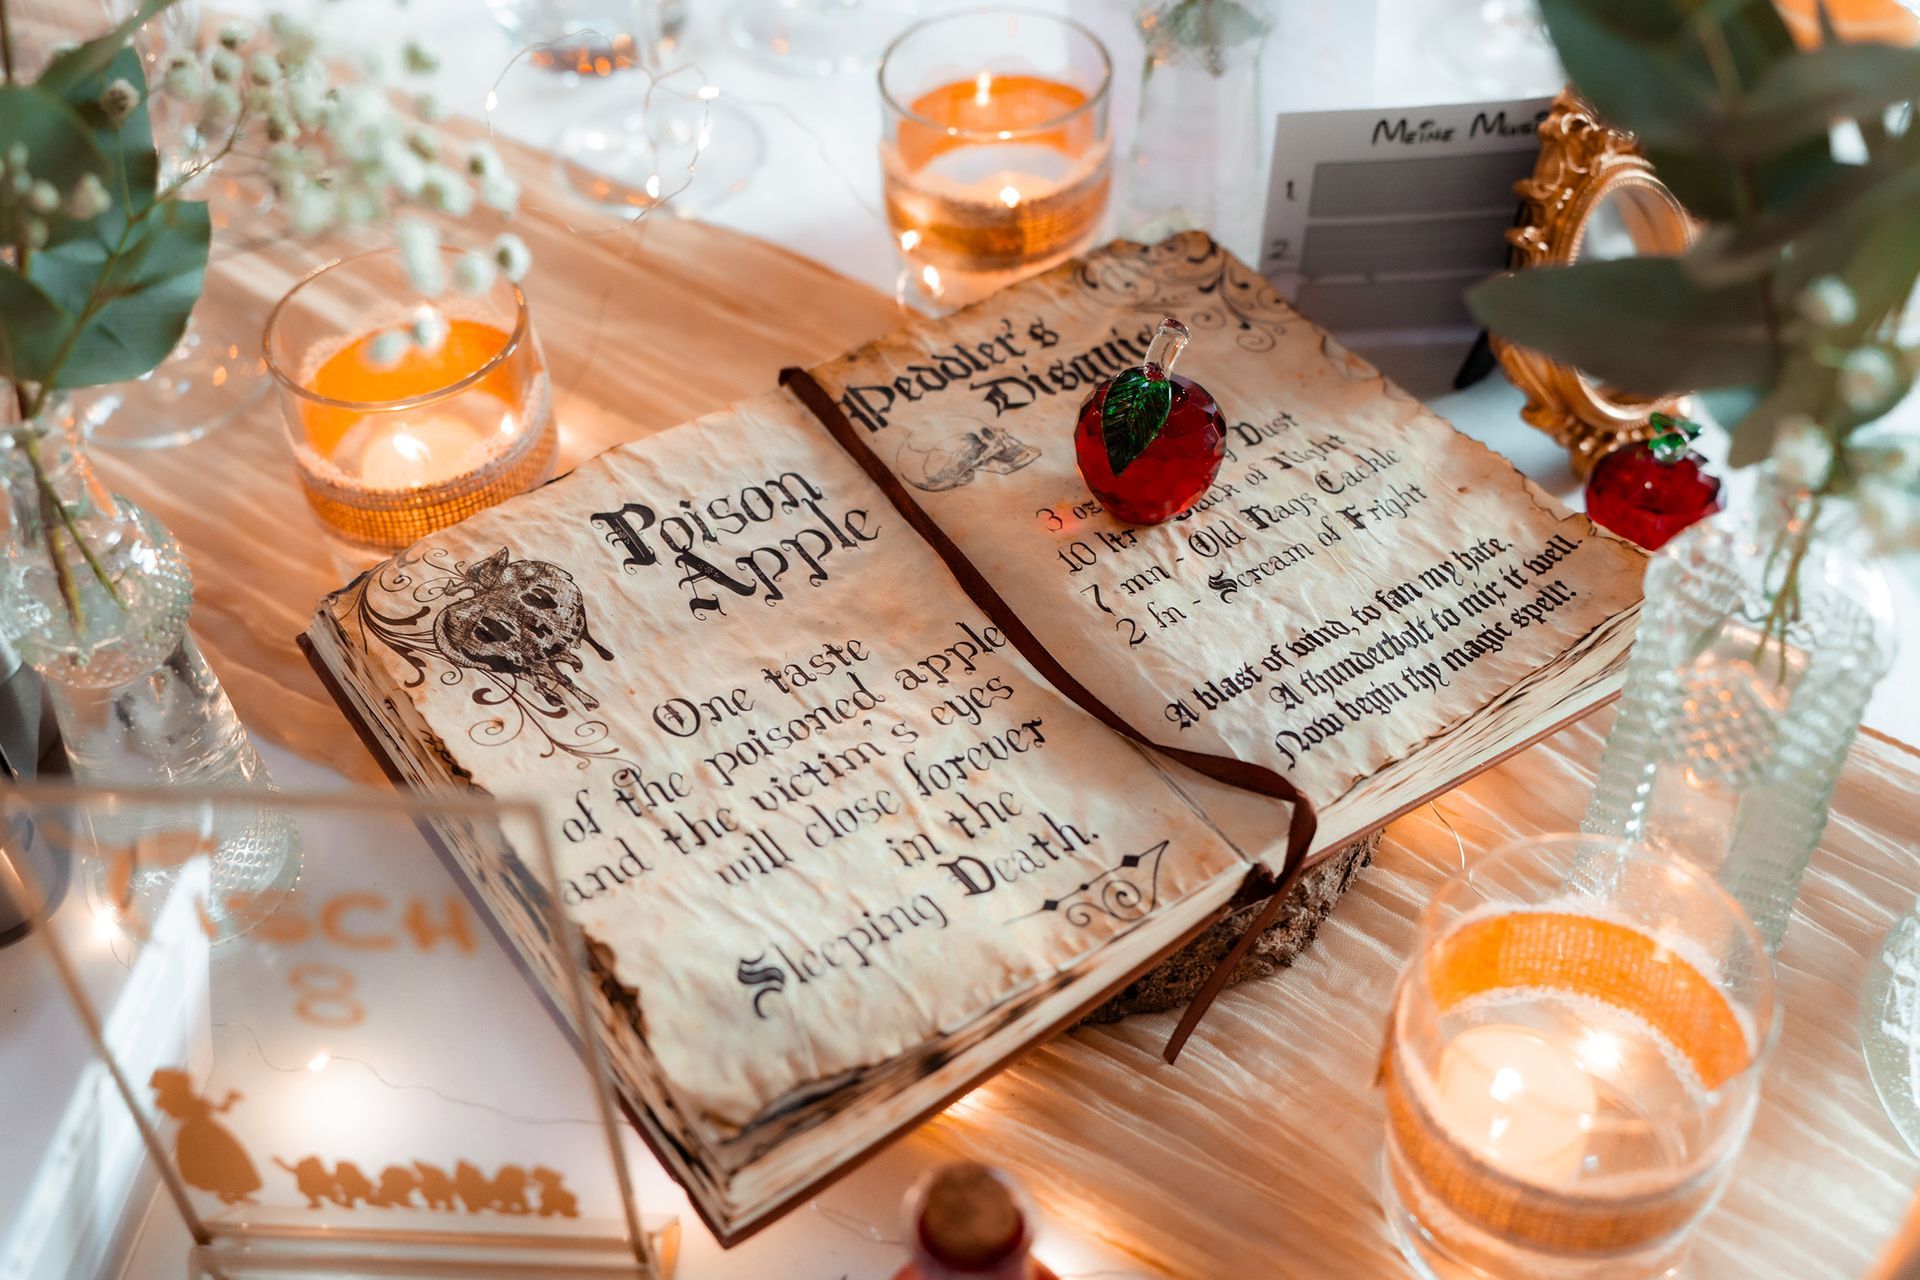 Poison
Apple
One taste
of the poisoned apple
and the victim's eyes
will close forever
in the
Sleeping Death.
Peddler's
3 oz Dust
10 ltr Black of Night
7 mn - Old Hags Cackle
2 fn - Scream of Fright
A blast of wind, to fan my hate.
A thunderbolt to mix it well.
Now begin thy magic spell!
MEINE
1
2
8